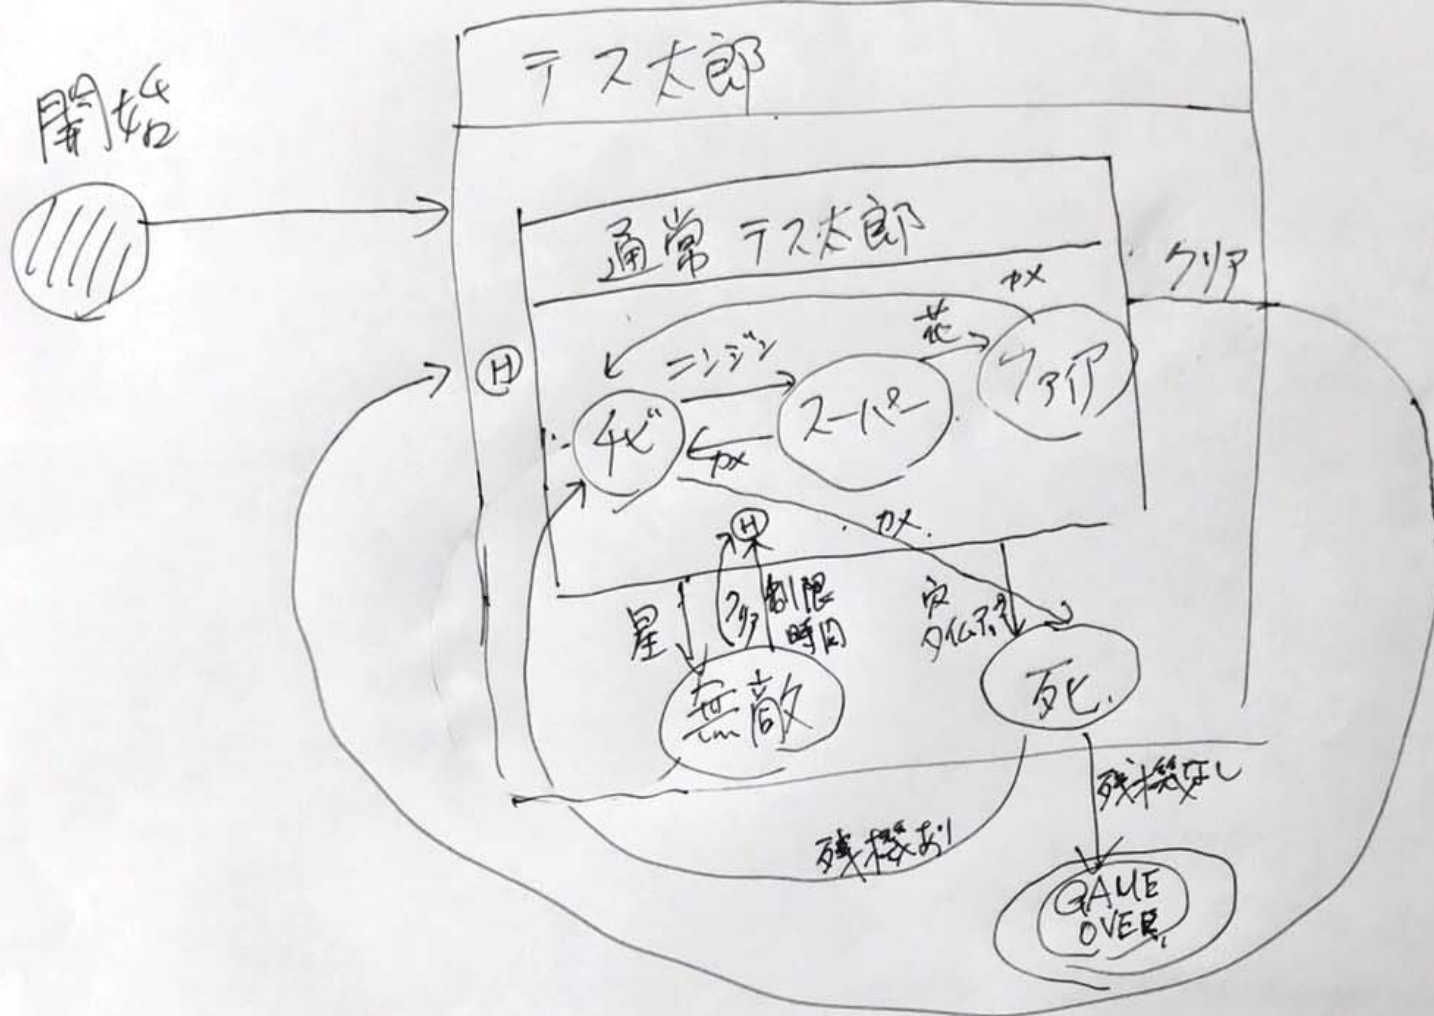 テス太郎
開始
通常 テス太郎
クリア
カメ
花
ニンジン
ファイア
H
スーパー
チビ
カメ
H
カメ
星
クリア
制限
時間
穴
タイムアップ
無敵
死
残機なし
残機あり
GAME
OVER